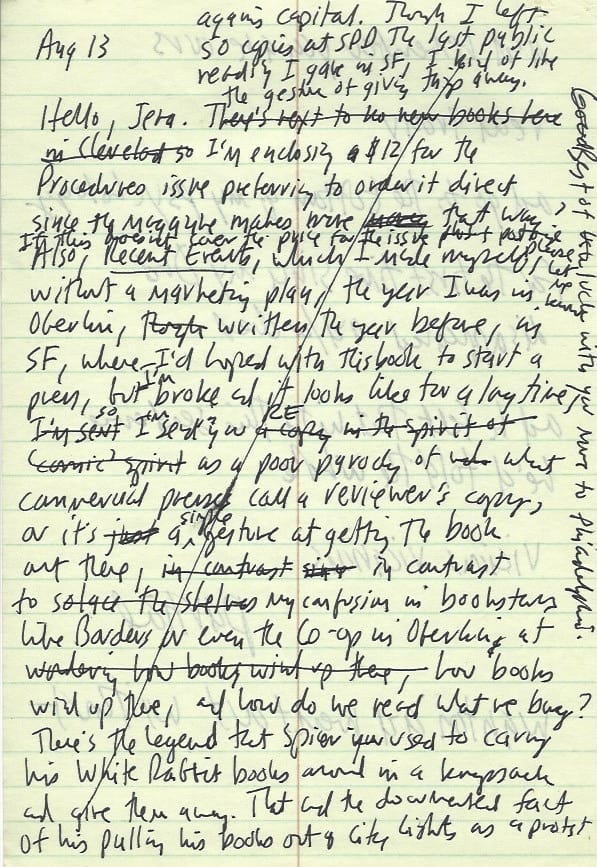 Aug 13
Hello, Jena. There's next to no new books here
in Cleveland so I'm enclosing a $12 for the
Procedures issue preferring to order it direct
since the magazine makes more that way,
If this doesn't cover the price for the issue plus postage please let me know
Also, Recent Events, which I made myself,
without a marketing plan, the year I was in
Oberlin, though written the year before, in
SF, where I'd hoped with this book to start a
press, but I'm broke and it looks like for a long time,
I'm sent so I'm sending you RE a copy in the spirit of
"comic" spirit as a poor pyrody of what
commercial presses call a reviewer's copy,
or it's just a simple gesture at getting the book
out there, in contrast in contrast
to solace the shelves my confusion in bookstores
like Borders or even the Co-op in Oberlin, at
wondering how books wind up there, how books
wind up there, and how do we read what we buy?
There's the legend that Spicer used to carry
his White Rabbit books around in a knapsack
and give them away. That and the documented fact
of his pulling his books out of City Lights as a protest
against capital. Though I left
50 copies at SPD the last public
reading I gave in SF, I kind of like
the gesture of giving this away.
Best of luck with your move to Philadelphia.